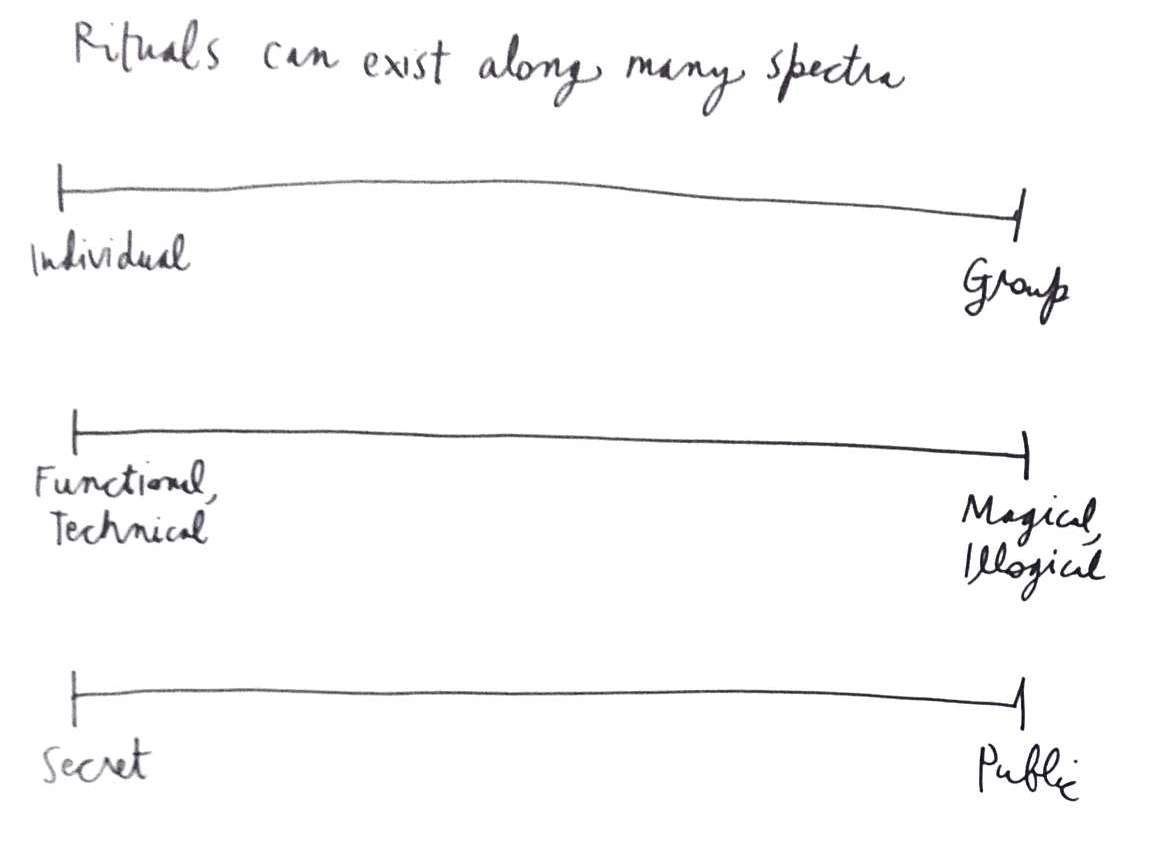 Rituals can exist along many spectra
Individual
Group
Functional,
Technical
Magical,
Illogical
Secret
Public